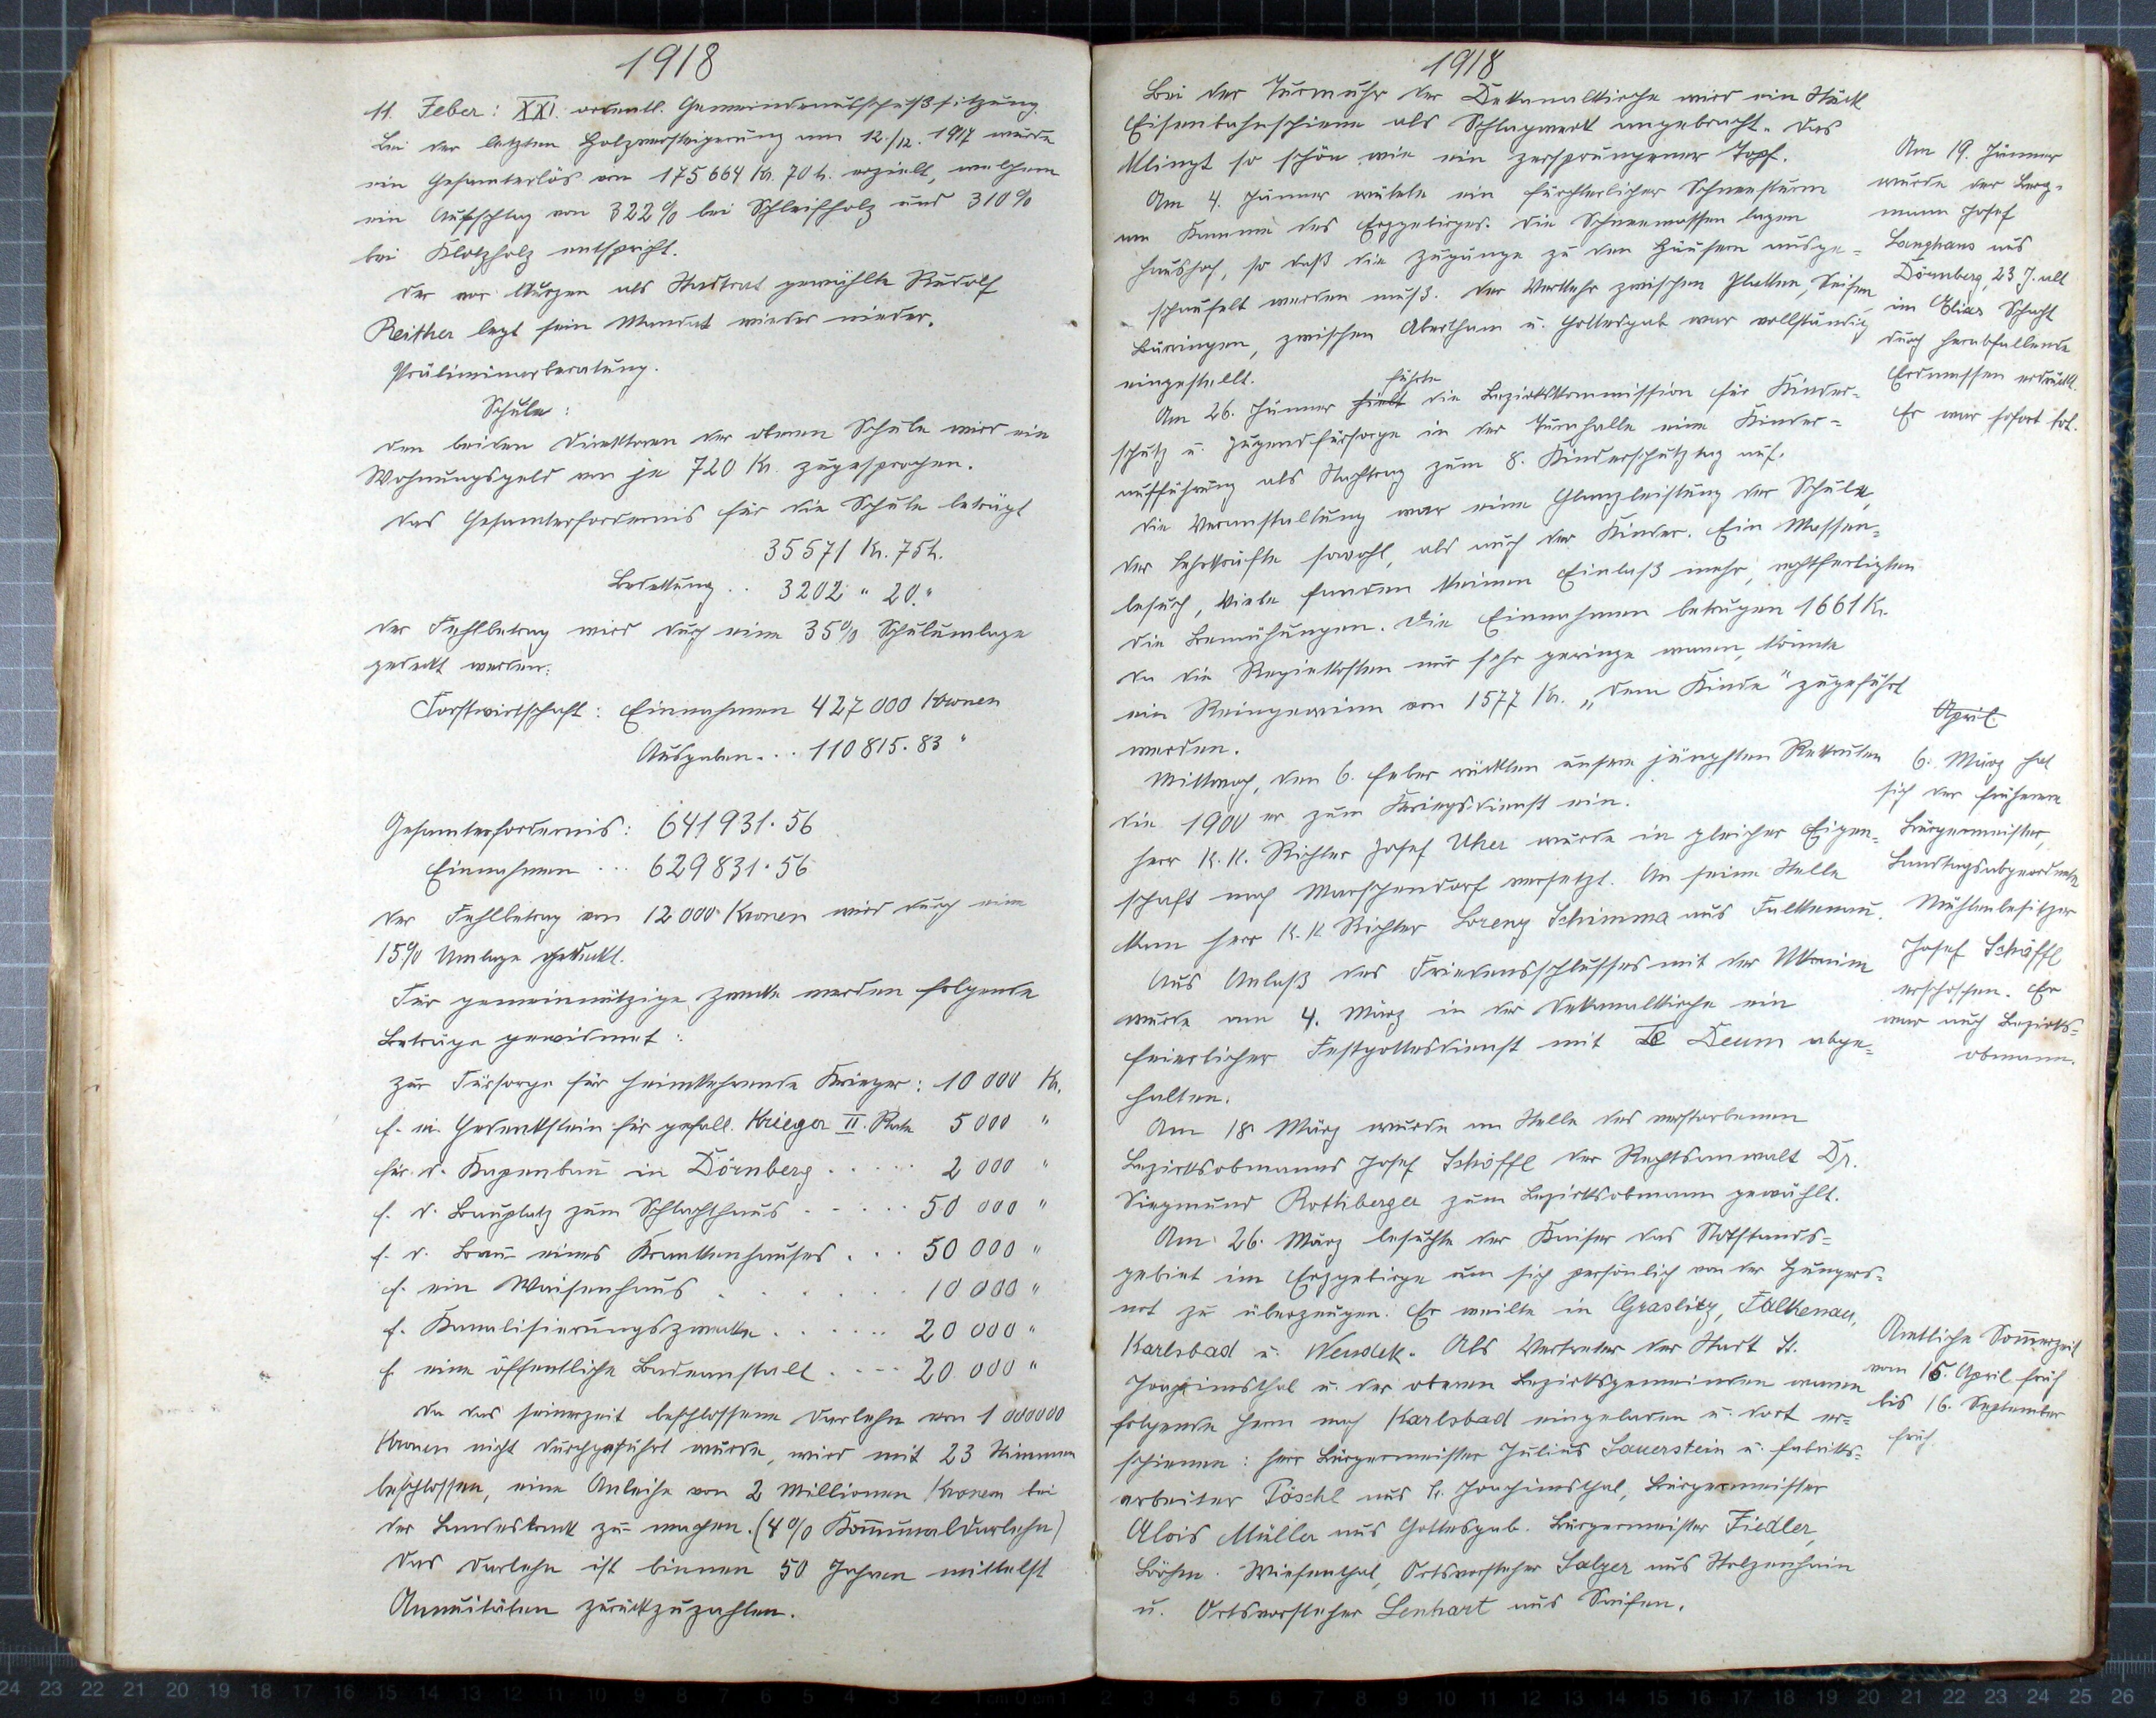 1918
11. Feber: XXI. ordentl. Gemeindeausschußsitzung.
Bei der letzten Holzversteigerung am 12./12. 1917 wurde
ein Gesamterlös von 175664 Kr. 70 h. erzielt, welchem
ein Aufschlag von 322% bei Schleifholz und 310%
bei Klotzholz entspricht.
Der vor Kurzen als Stadtrat gewählte Rudolf
Reither legt sein Mandat wieder nieder.
Präliminarberatung.
Schule:
Den beiden Direktoren der oberen Schule wird ein
Wohnungsgeld von je 720 Kr. zugesprochen.
Das Gesamterfordernis für die Schule beträgt
35571 Kr. 75 h.
Bedekung .. 3202 " 20 "
Der Fehlbetrag wird durch eine 35% Schulumlage
gedekt werden.
Forstwirtschaft: Einnahmen 427000 Kronen
Ausgaben ... 110815.83 "
Gesamterfordernis: 641931.56
Einnahmen ... 629831.56
Der Fehlbetrag von 12000 Kronen wird durch eine
15% Umlage gedekt.
Für gemeinnützige Zweke werden folgende
Beträge gewidmet:
Zur Fürsorge für heimkehrende Krieger: 10000 Kr.
f. ein Gedenkstein für gefall. Krieger II. Rate 5000 "
für d. Kapenbau in Dörnberg ..... 2000 "
f. d. Bauplatz zum Schlachthaus ..... 50 000 "
f. d. Bau eines Krankenhauses ... 50 000 "
f. ein Waisenhaus ...... 10 000 "
f. Kanalisierungszweke ...... 20 000 "
f. eine öffentliche Badeanstalt .... 20 000 "
Da das seinerzeit beschlossene Darlehn von 1 000000
Kronen nicht durchgeführt wurde, wird mit 23 Stimmen
beschlossen, eine Anleihe von 2 Millionen Kronen bei
der Landesbank zu machen. (4% Kommunaldarlehn)
Das Darlehn ist binnen 50 Jahren mittelst
Annuitäten zurückzuzahlen.
1918
Bei der Turmuhr der Dekanalkirche wird ein Stück
Eisenbahnschiene als Schlagwerk angebracht. Das
klingt so schön wie ein zersprungener Topf.
Am 4. Jänner wütete ein fürchterlicher Schneesturm
am Kamme des Erzgebirges. Die Schneemassen lagen
haushoch, so daß die Zugänge zu den Häusern ausge=
schaufelt werden muß. Der Verkehr zwischen Platten, Seifen,
Bäringen, zwischen Abertham u. Gottesgab war vollständig
eingestellt.
führte
Am 26. Jänner hielt die Bezirkskommission für Kinder=
schutz u. Jugendfürsorge in der Turnhalle eine Kinder=
aufführung als Nachtrag zum 8. Kinderschutztag auf.
Die Veranstaltung war eine Glanzleistung der Schule,
der Lehrkräfte sowohl, als auch der Kinder. Ein Massen=
besuch, Viele fanden keinen Einlaß mehr, rechtfertigten
die Bemühungen. Die Einnahmen betrugen 1661 Kr.
Da die Regiekosten nur sehr geringe waren, konnte
ein Reingewinn von 1577 Kr. „dem Kinde" zugeführt
werden.
Mittwoch, den 6. Feber rückten unsere jüngsten Rekruten
die 1900 er zum Kriegsdienst ein.
Herr K. K. Richter Josef Uher wurde in gleicher Eigen=
schaft nach Marschendorf versetzt. An seine Stelle
kam Herr K. K Richter Lorenz Schimma aus Falkenau.
Aus Anlaß des Friedensschlusses mit der Ukraine
wurde am 4. März in der Dekanalkirche ein
feierlicher Festgottesdienst mit Te Deum abge=
halten.
Am 18. März wurde an Stelle des verstorbenen
Bezirksobmannes Josef Schöffl der Rechtsanwalt Dr.
Siegmund Rottiberger zum Bezirksobmann gewählt.
Am 26. März besuchte der Kaiser das Notstands=
gebiet im Erzgebirge um sich persönlich von der Hungers=
not zu überzeugen. Er weilte in Graslitz, Falkenau,
Karlsbad u. Neudek. Als Vertreter der Stadt St.
Joachimsthal u. der oberen Bezirksgemeinden waren
folgende Herrn nach Karlsbad eingeladen u. dort er=
schienen: Herr Bürgermeister Julius Sauerstein u. Fabriks=
arbeiter Pöschl aus St. Joachimsthal, Bürgermeister
Alois Müller aus Gottesgab. Bürgermeister Fiedler,
Böhm. Wiesenthal, Ortsvorsteher Salzer aus Stolzenhain
u. Ortsvorsteher Lenhart aus Seifen.
Am 19. Jänner
wurde der Berg=
mann Josef
Langhans aus
Dörnberg, 23 J. alt
im Elias Schacht
durch herabfallende
Erdmassen erdrückt.
Er war sofort tot.
April
6. März hat
sich der frühere
Bürgermeister,
Landtagsabgeordnete
Mühlenbesitzer
Josef Schöffl
erschossen. Er
war auch Bezirks=
obmann.
Amtliche Sommerzeit
vom 15. April früh
bis 16. September
früh.